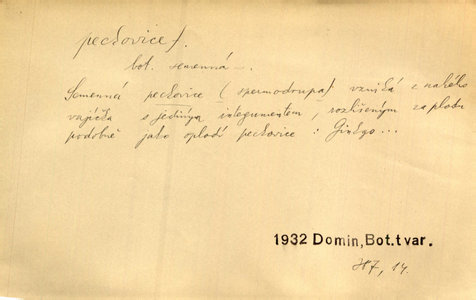 peckovice f.
bot. semenná –
Semenná peckovice (spermodrupa) vzniká z nahého
vajíčka s jediným integumentem, rozlišeným za plodu
podobně jako oplodí peckovice : Ginkgo ...
1932 Domin, Bot.tvar.
14.